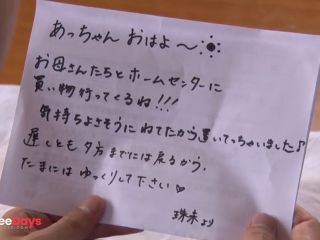 あっちゃん おはよ〜☀
お母さんたちとホームセンターに
買い物行ってくるね!!!
気持ちよさそうにねてたから置いてっちゃいました♪
遅くとも夕方までには戻るから、
たまにはゆっくりして下さい♡
珠未より
eeDays